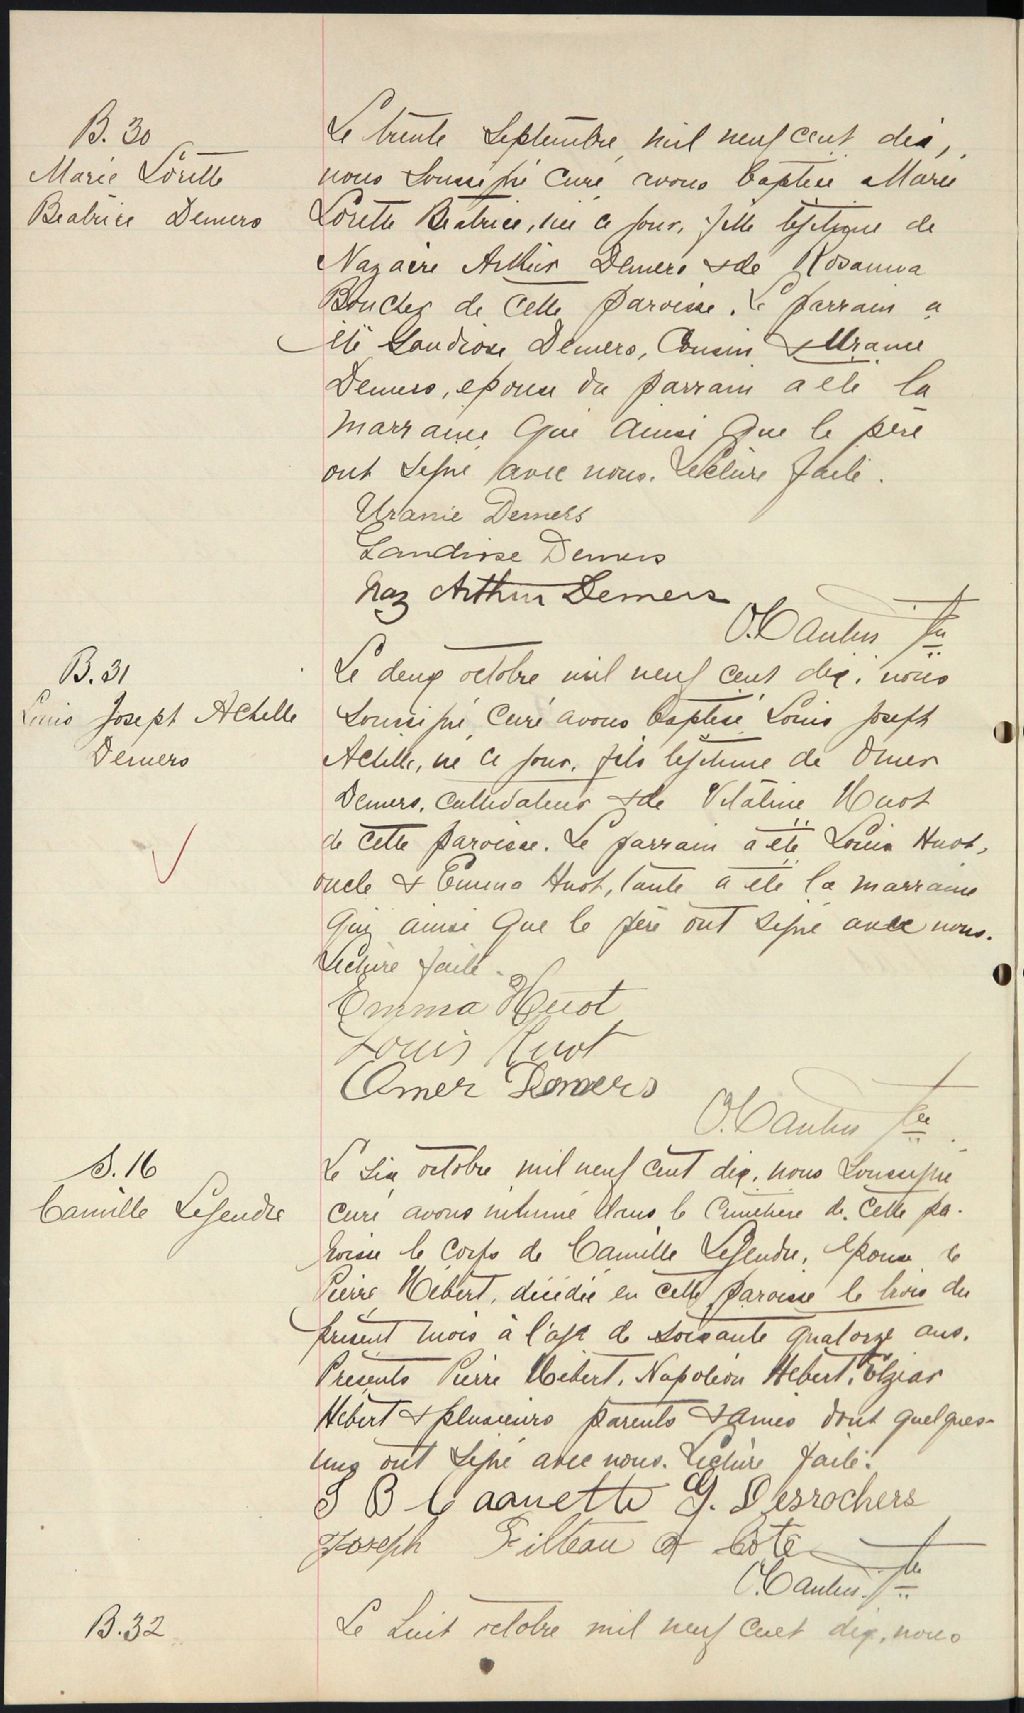 B. 30
Marie Lorette
Beatrice Demers
Le trente Septembre mil neuf cent dix,
nous soussigné curé avons baptisé Marie
Lorette Beatrice, née ce jour, fille légitime de
Nazaire Arthur Demers & de Rosanna
Boucher de cette paroisse. Le parrain a
été Demers, Cousin & Uranie
Demers, epouse du parrain a été la
marraine qui ainsi que le père
ont signé avec nous. Lecture faite.
Uranie Demers
Demers
Naz Arthur Demers
Ptre
B. 31
Louis Joseph Achille
Demers
Le deux octobre mil neuf cent dix, nous
soussigné, curé avons baptisé Louis Joseph
Achille, né ce jour, fils légitime de Omer
Demers, cultivateur & de Huot
de cette paroisse. Le parrain a été Louis Huot,
oncle & Emma Huot, tante a été la marraine
qui ainsi que le père ont signé avec nous.
Lecture faite.
Emma Huot
Louis Huot
Omer Demers
Ptre
S. 16
Camille Legendre
Le six octobre mil neuf cent dix, nous soussigné
curé avons inhumé dans le cimetière de cette pa-
roisse le corps de Camille Legendre, epouse de
Pierre Hébert, décédée en cette paroisse le trois du
présent mois à l'age de soixante quatorze ans.
Présents Pierre Hébert, Napoléon Hébert, Elzéar
Hébert & plusieurs parents & amis dont quelques-
uns ont signé avec nous. Lecture faite.
J B G. Desrochers
Joseph Filteau Coté
Ptre
B. 32
Le huit octobre mil neuf cent dix, nous